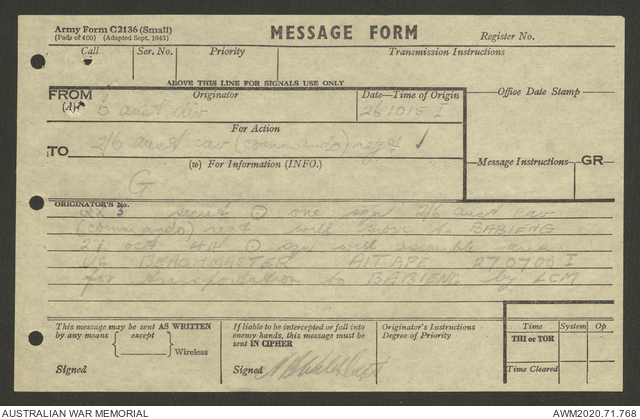 Army Form C2136 (Small)
(Pads of 100) (Adapted Sept. 1943)
MESSAGE FORM
Register No.
Call
Ser. No.
Priority
Transmission Instructions
ABOVE THIS LINE FOR SIGNALS USE ONLY
FROM
(A)
Originator
Date—Time of Origin
Office Date Stamp
6 aust div
261015 I
For Action
TO
2/6 aust cav (commando) regt
(w) For Information (INFO.)
Message Instructions
GR
G
ORIGINATOR'S No.
secret one sqn 2/6 aust cav
(commando) regt will move to BABIENG
27 oct 44 sqn will assemble area
US BEACHMASTER AITAPE 270700 I
for transportation to BABIENG by LCM
This message may be sent AS WRITTEN
by any means
except
Wireless
Signed
If liable to be intercepted or fall into
enemy hands, this message must be
sent IN CIPHER
Signed
Originator's Instructions
Degree of Priority
Time
System
Op.
THI or TOR
Time Cleared
AUSTRALIAN WAR MEMORIAL
AWM2020.71.768